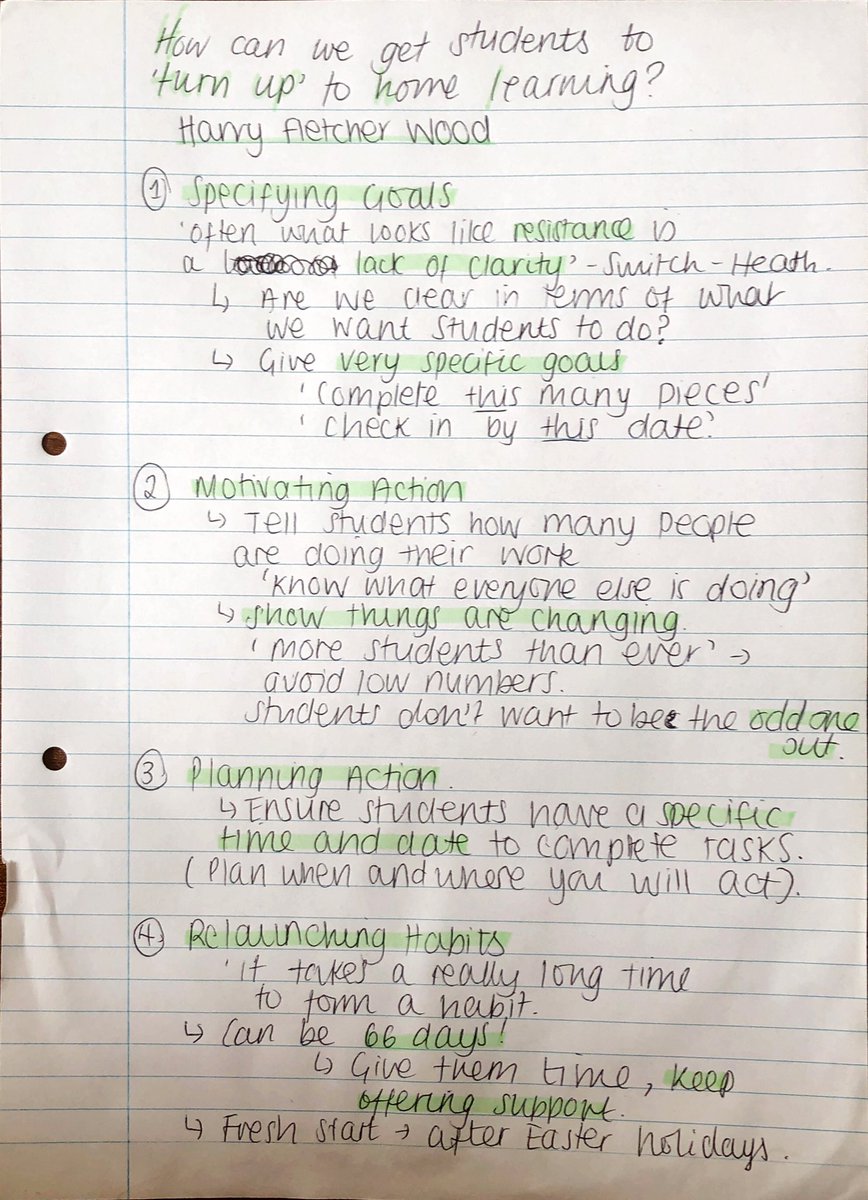 How can we get students to
'turn up' to home learning?
Harry Fletcher Wood
① Specifying Goals
'often what looks like resistance is
a lack of clarity' - Switch - Heath.
↳ Are we clear in terms of what
we want students to do?
↳ Give very specific goals
'complete this many pieces'
'check in by this date'
② Motivating Action
↳ Tell students how many people
are doing their work
'know what everyone else is doing'
↳ show things are changing.
'more students than ever' →
avoid low numbers.
Students don't want to be the odd one
out.
③ Planning Action.
↳ Ensure students have a specific
time and date to complete tasks.
(Plan when and where you will act).
④ Relaunching Habits
'it takes a really long time
to form a habit.
↳ Can be 66 days!
↳ Give them time, keep
offering support.
↳ Fresh start → after Easter holidays.